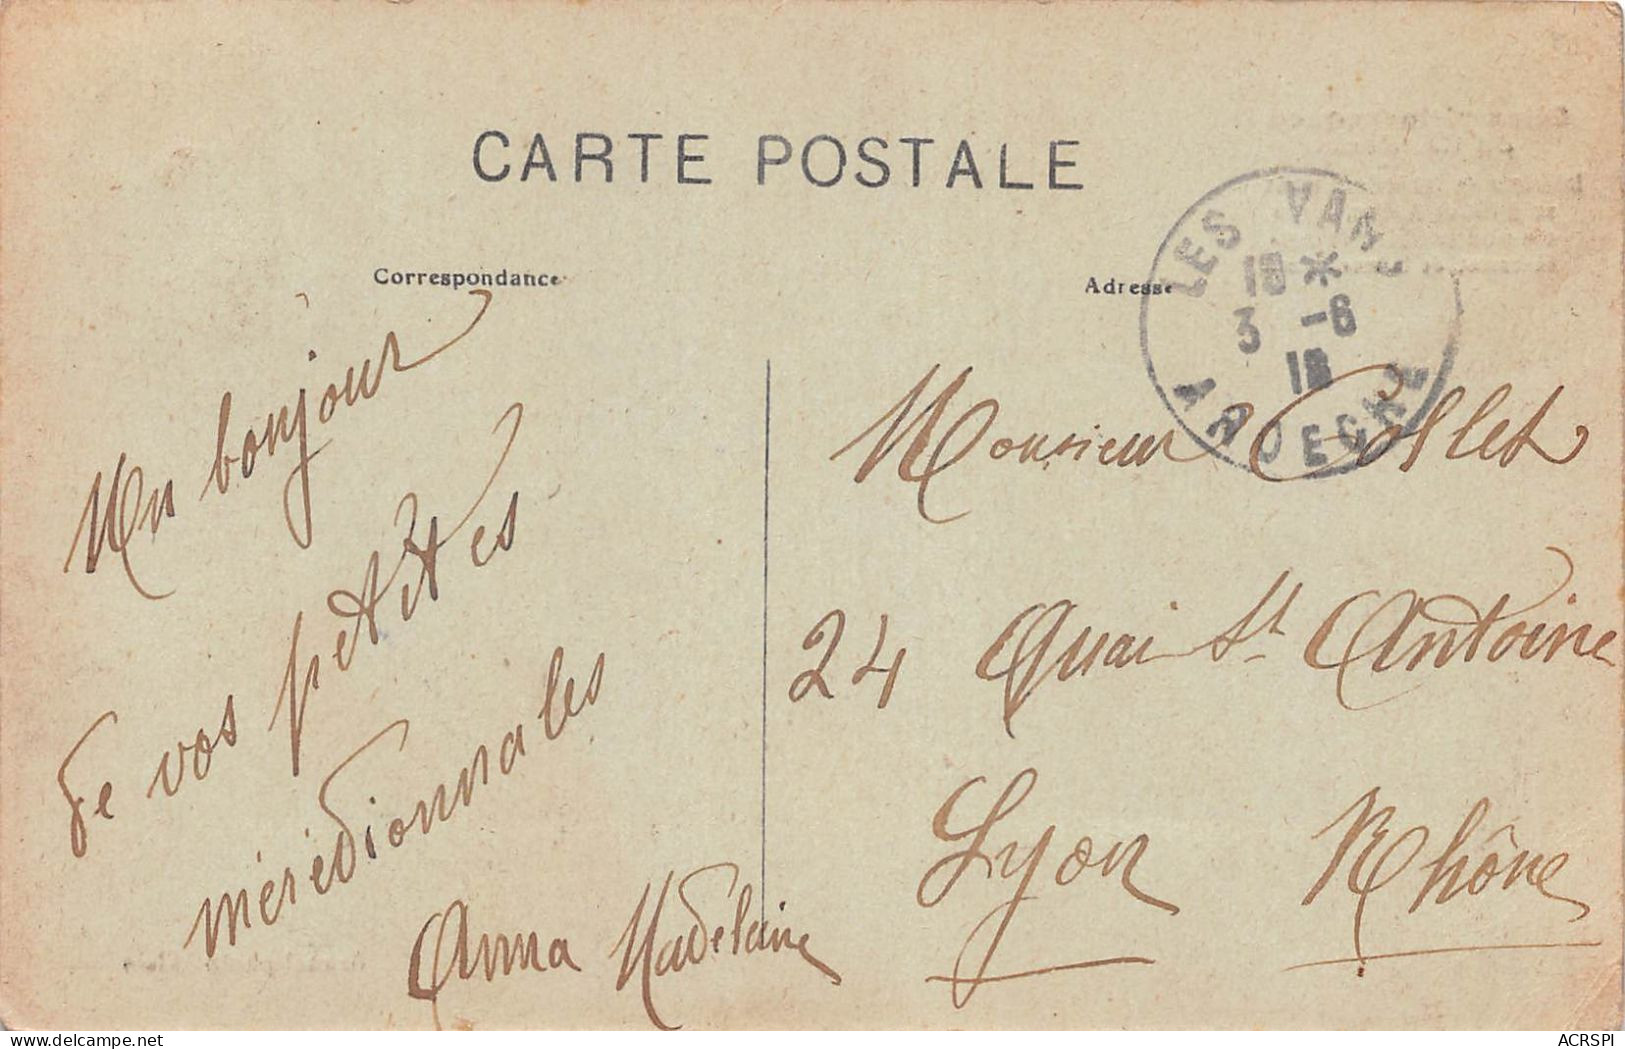 CARTE POSTALE
Correspondance
Adresse
LES VAN
18 *
3 -6
18
ARDECHE
Un bonjour
de vos petites
méredionnales
Anna Madelaine
Monsieur Collet
24 Quai St Antoine
Lyon Rhône
delcampe.net
ACRSPI